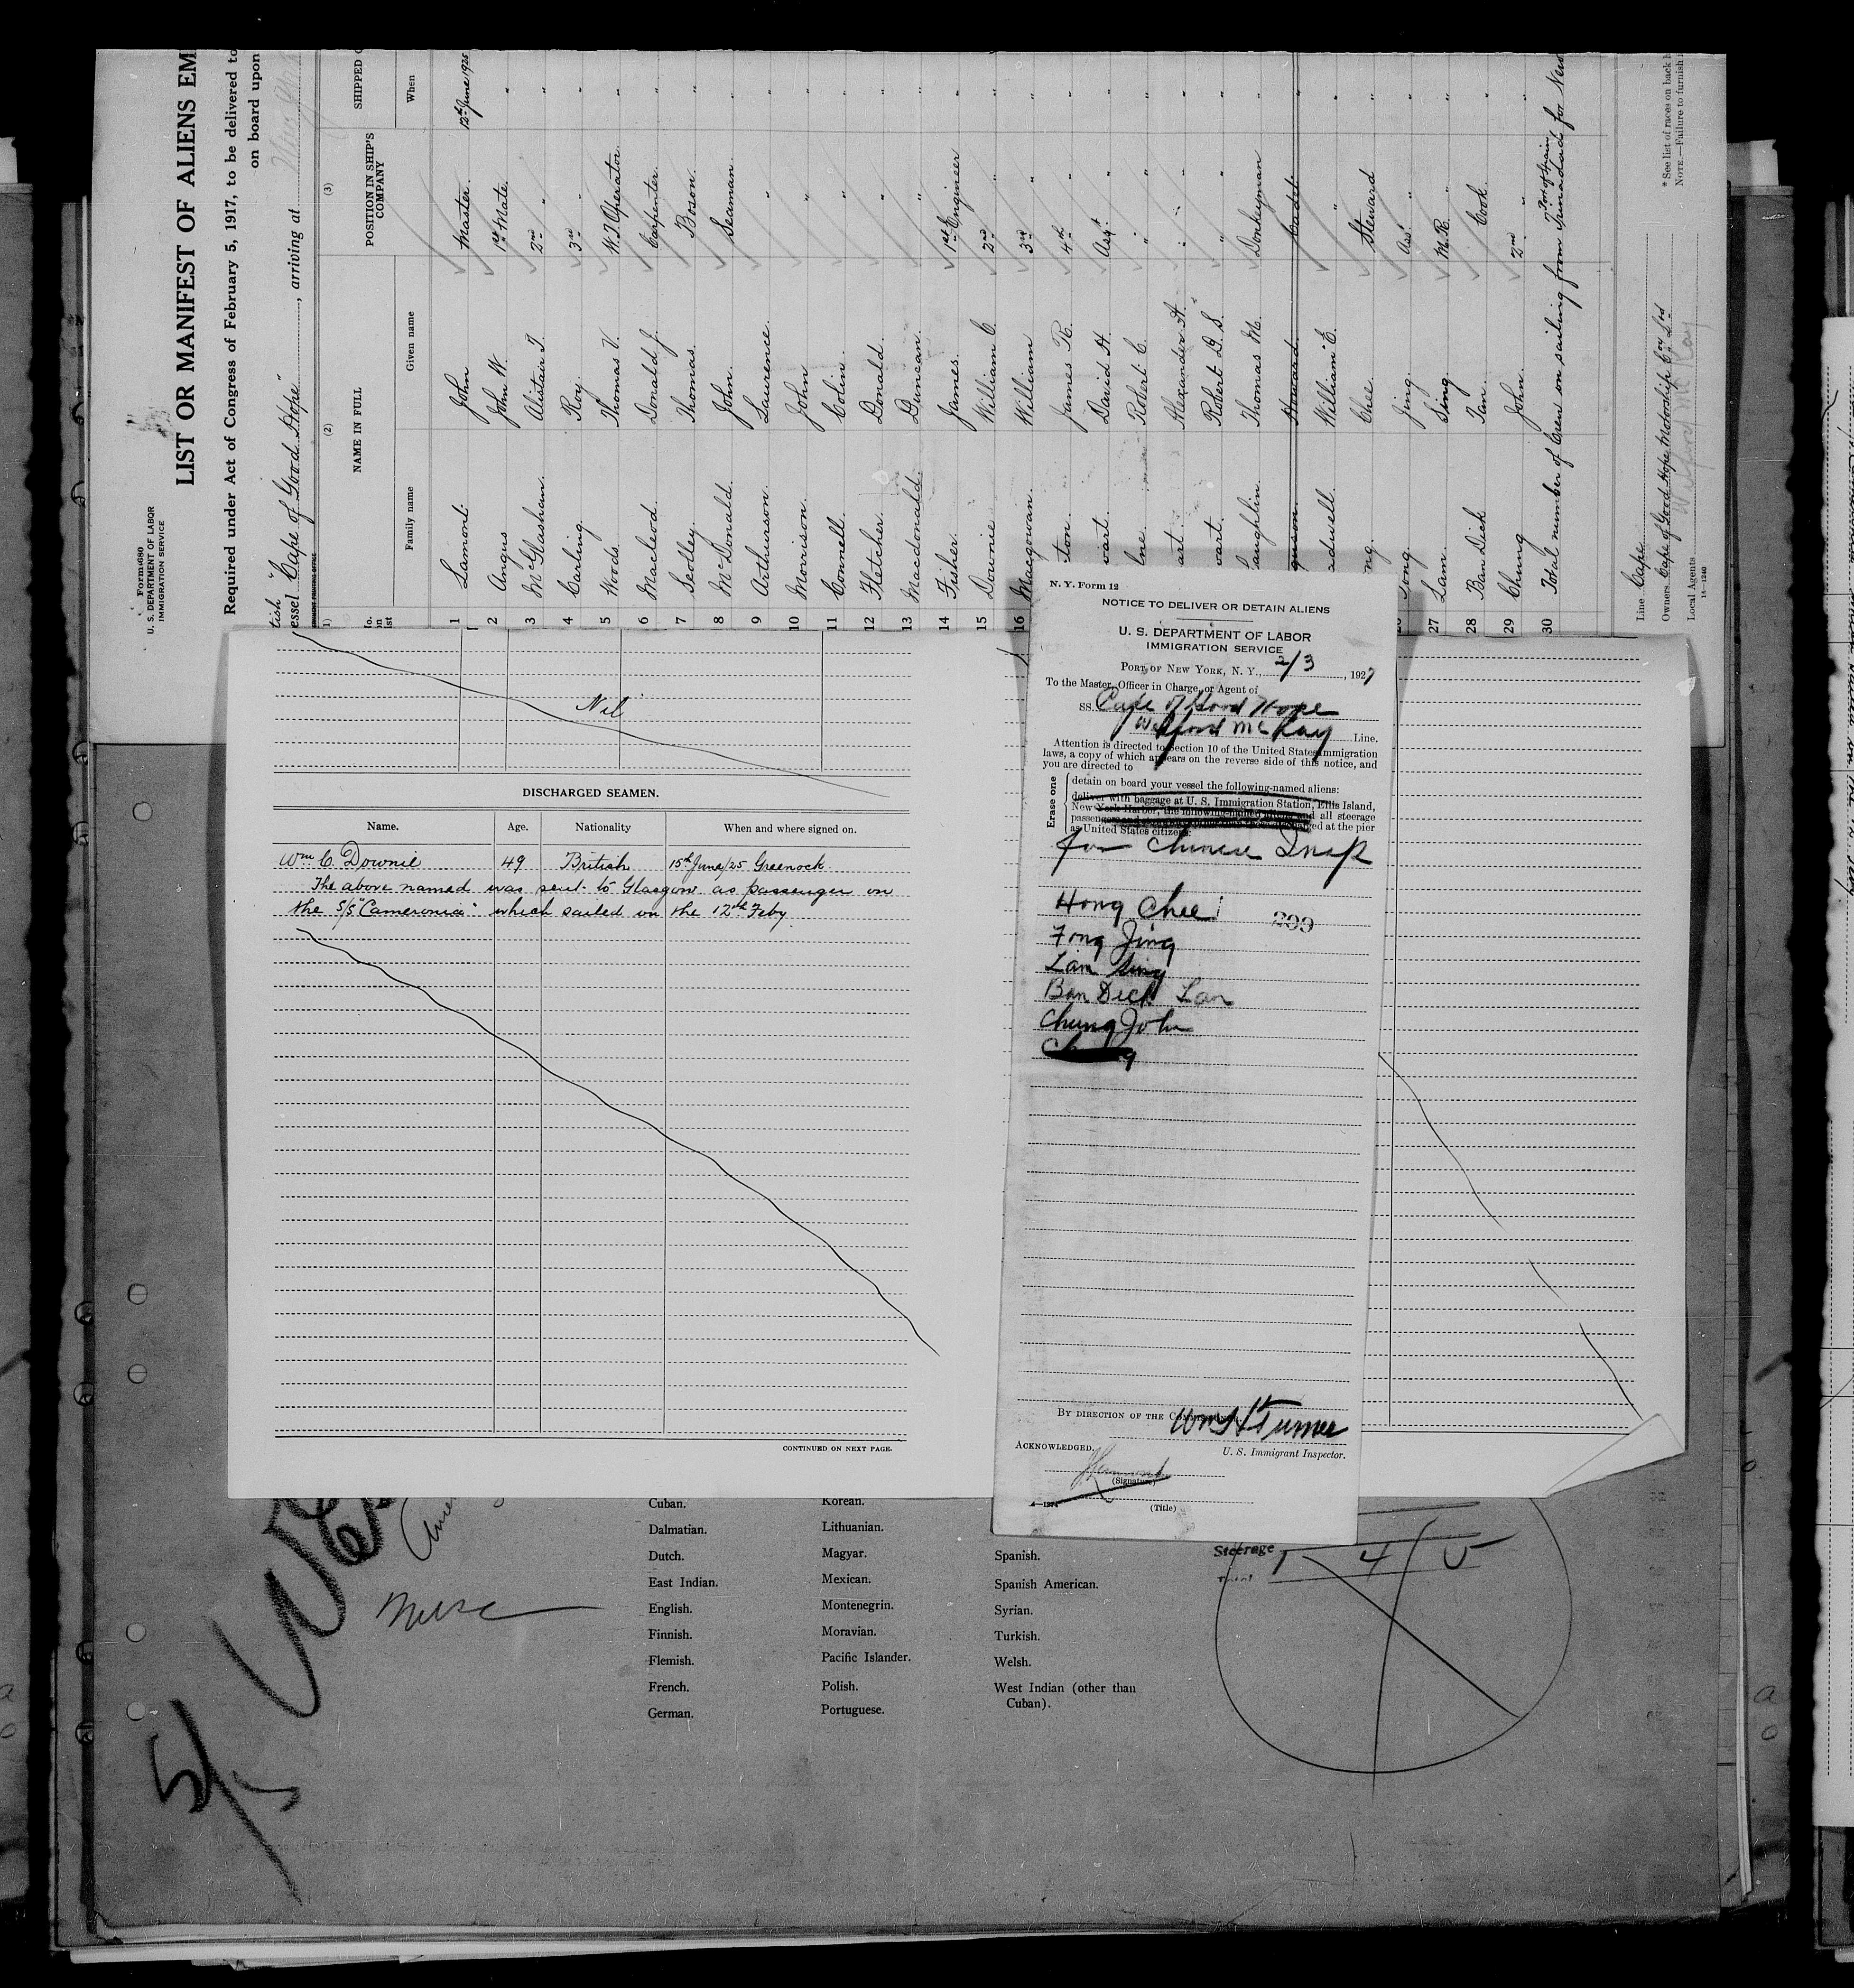 Form 680
U. S. DEPARTMENT OF LABOR
IMMIGRATION SERVICE
LIST OR MANIFEST OF ALIENS EM
Required under Act of Congress of February 5, 1917, to be delivered to
on board upon
essel "Cape of Good Hope" , arriving at
(2) (3)
NAME IN FULL POSITION IN SHIP'S COMPANY SHIPPED O
Family name Given name When
1 Lamont John Master 12th June 1925
2 Angus John W. 1st Mate "
3 McGlashan Alistair T. 2nd " "
4 Carling Roy 3rd " "
5 Woods Thomas V. W.T. Operator "
6 Macleod Donald J. Carpenter "
7 Sedley Thomas Bosun "
8 McDonald John Seaman "
9 Arthurson Laurence " "
10 Morrison John " "
11 Connell Colin " "
12 Fletcher Donald " "
13 Macdonald Duncan " "
14 Fisher James 1st Engineer "
15 Downie William C. 2nd " "
16 Macgowan William 3rd " "
ton James R. 4th " "
wart David H. Asst "
lne Robert C. " "
art Alexander H. " "
wart Robert D. S. " "
aughlin Thomas M. Donkeyman "
guson Howard Cadet "
adwell William E. " "
ong Chee Steward "
Tong Jing Ass " "
27 Lam Sing M.R. "
28 Ban Dick Tan Cook "
29 Chung John 2nd " "
30 Total number of Crew on sailing from Port of Spain Trinidad for New
Line Cape
Owners Cape of Good Hope Motorship Coy Ltd
Local Agents Wilford McKay
14—1240
* See list of races on back h
NOTE.—Failure to furnish
Nil
DISCHARGED SEAMEN.
Name. Age. Nationality When and where signed on.
Wm C. Downie 49 British 15th June/25 Greenock
The above named was sent to Glasgow as passenger on
the S/S "Cameronia" which sailed on the 12th Feby
CONTINUED ON NEXT PAGE.
N. Y. Form 12
NOTICE TO DELIVER OR DETAIN ALIENS
U. S. DEPARTMENT OF LABOR
IMMIGRATION SERVICE
PORT OF NEW YORK, N. Y., 2/3, 1927
To the Master, Officer in Charge, or Agent of
SS. Cape of Good Hope
Wilford McKay Line.
Attention is directed to Section 10 of the United States immigration
laws, a copy of which appears on the reverse side of this notice, and
you are directed to
Erase one
detain on board your vessel the following-named aliens:
deliver with baggage at U. S. Immigration Station, Ellis Island,
New York Harbor, the following-named aliens and all steerage
passengers at the pier
as United States citizens:
for Chinese Insp
Hong Chee
299
Fong Jing
Lam Sing
Ban Dick Lan
Chung John
BY DIRECTION OF THE COMMISSIONER.
Wm H Turner
U. S. Immigrant Inspector.
ACKNOWLEDGED.
(Signature)
(Title)
Cuban.
Dalmatian.
Dutch.
East Indian.
English.
Finnish.
Flemish.
French.
German.
Korean.
Lithuanian.
Magyar.
Mexican.
Montenegrin.
Moravian.
Pacific Islander.
Polish.
Portuguese.
Spanish.
Spanish American.
Syrian.
Turkish.
Welsh.
West Indian (other than
Cuban).
Steerage